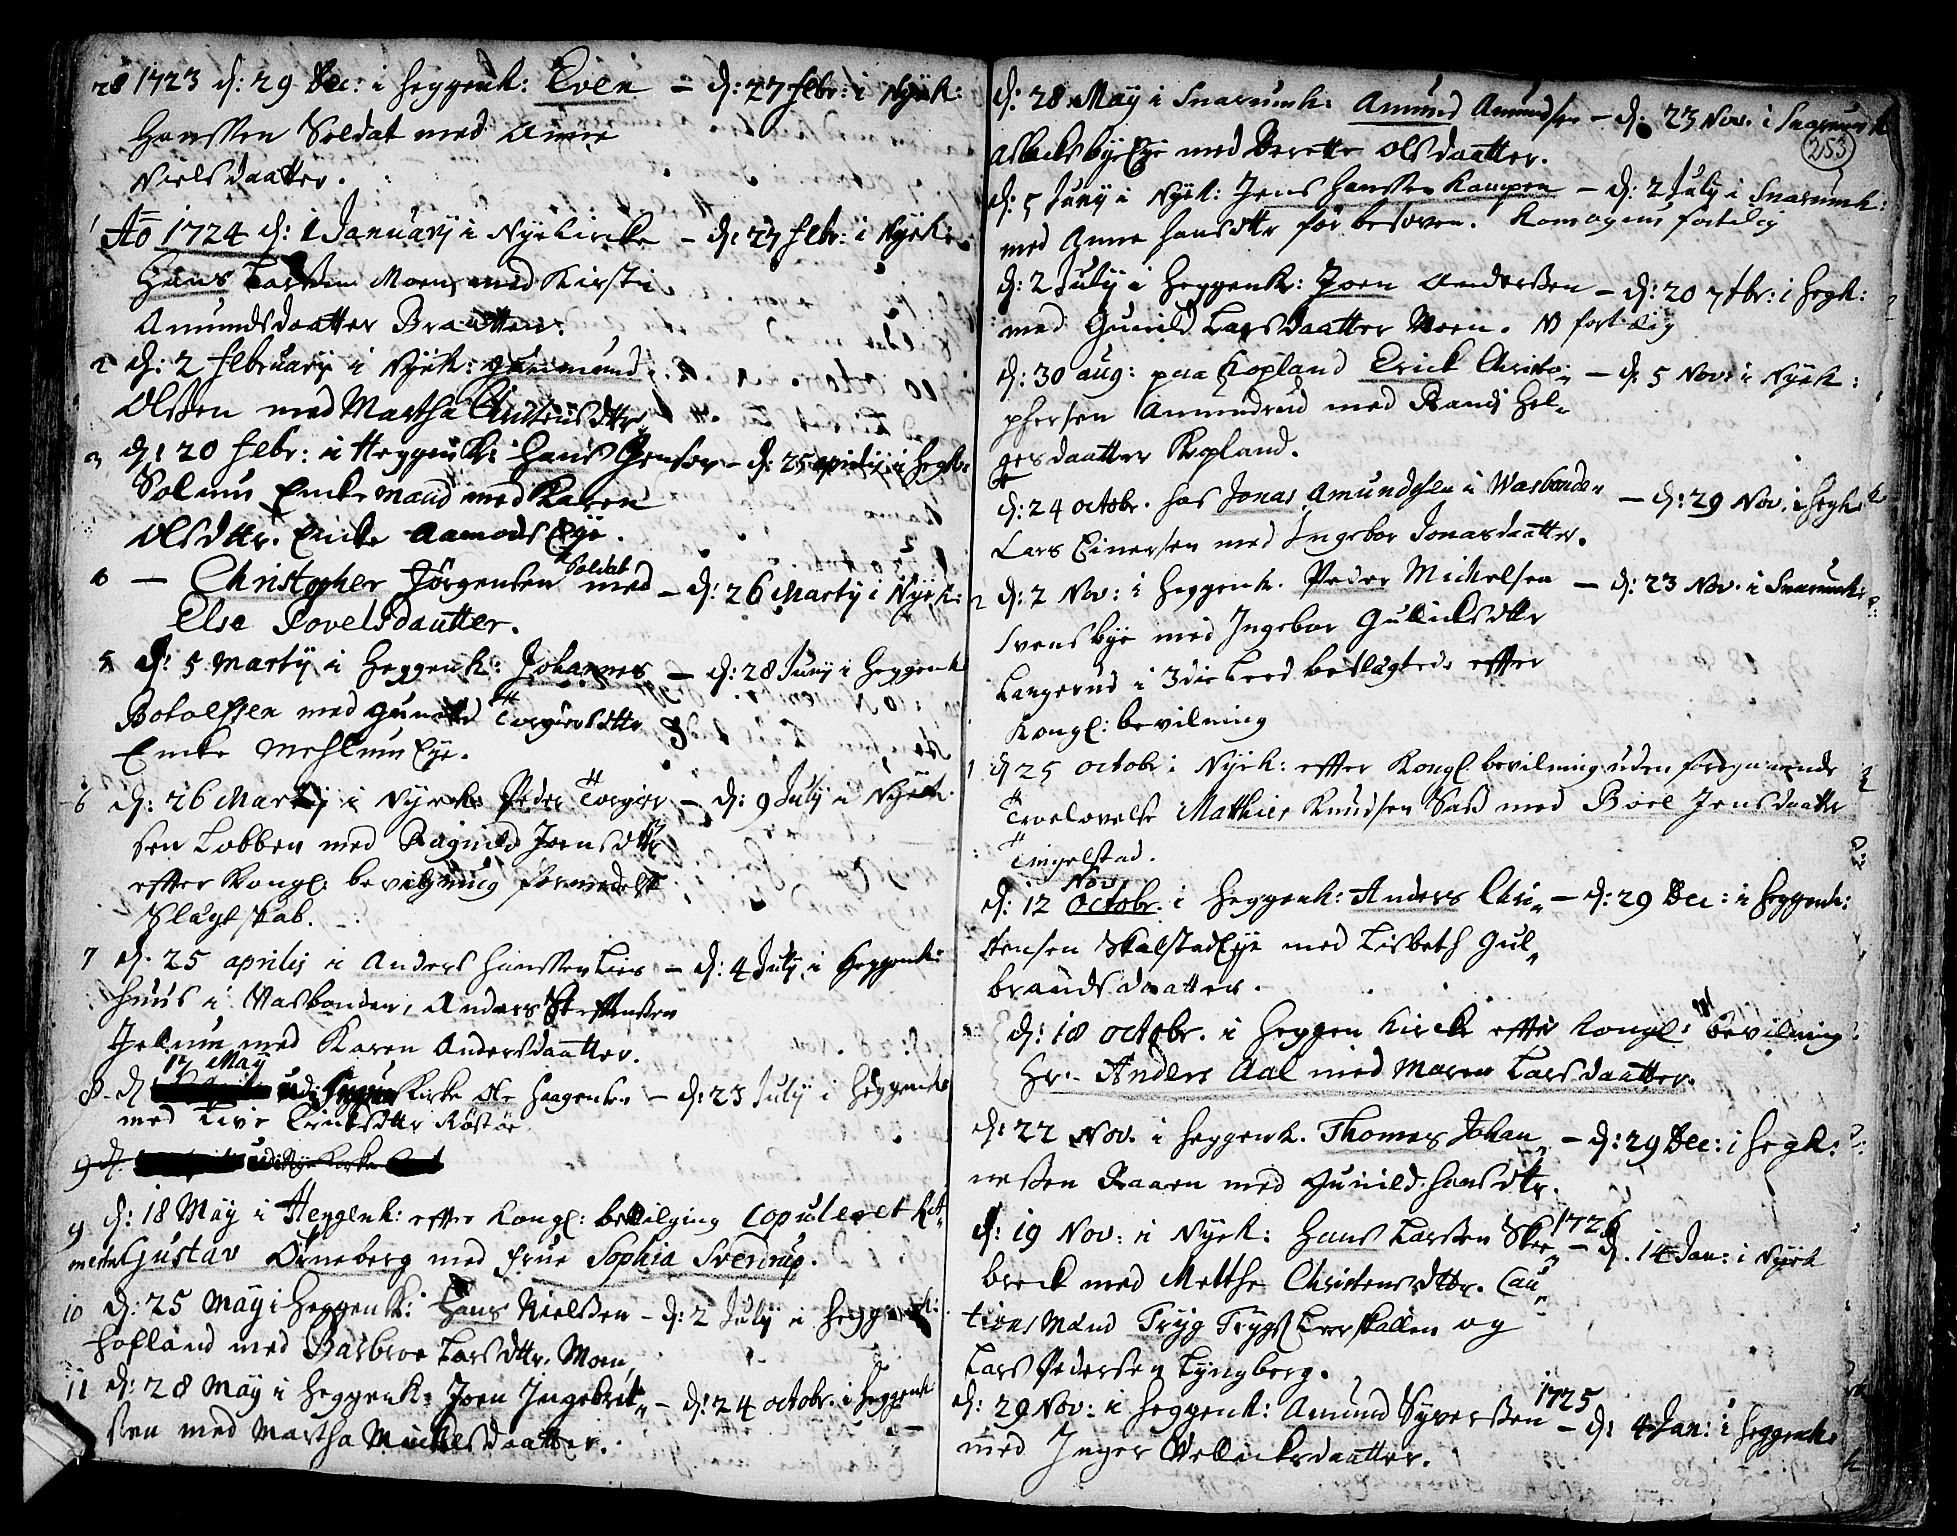 28 1723 d: 29 Dec: i Heggenk: Even – d: 27 Febr: i Nyek:
Hanssen Soldat med Anne
Nielsdaatter.
1 Ao 1724 d: 1 January i Nye Kircke – d: 27 Febr: i Nyek:
Hans Larssen Moen med Kirsti
Amundsdaatter Braatten.
2 d: 2 February i Nyek: Gudmund
Olssen med Martha Christensdttr
3 d: 20 Febr: i Heggenk: Hans Jensen – d: 25 aprilis i Hegk:
Solum Enckemand med Karen
Olsdttr. Encke Aamods Eye.
4 – Christopher Jørgensen Soldat med – d: 26 Marty i Nyek:
Else Povelsdautter.
5 d: 5 Marty i Heggenk: Johannes – d: 28 Juny i Heggenk
Botolfsen med Gunild Torgiersdttr
Encke Mehlum Eye.
6 d: 26 Marty i Nyek: Peder Torgier – d: 9 July i Nyek.
sen Lobben med Ragnild Joensdttr
effter Kongl: bevilgning formedelst
Slugtskab.
7 d. 25 aprilis i Anders Hanssen Lies – d: 4 July i Heggenk:
Huus i Vasbonden, Anders Steffenssen
med Karen Andersdaatter.
8 d 17 May udi Heggen Kirke Ole Haagensen – d: 23 July i Heggenk
med Live Ericksdttr Røstøe
9 d. udi Nye Kirke
9 d: 18 May i Heggenk: effter Kongl: bevilging copuleret Rit-
mester Gustav Örneberg med Frue Sophia Sverdrup.
10 d: 25 May i Heggenk: Hans Nielssen – d: 2 July i Heggenk:
Hofland med Barbroe Larsdttr. Moen,
11 d: 28 May i Heggenk: Joen Ingebret- – d: 24 octobr. i Heggk
sen med Martha Mickelsdaatter.
253
d: 28 May i Snarumk: Amund Amundsen – d: 23 Nov. i Snarumk
Aslaksbye Eye med Berette Olsdaatter.
d: 5 Juny i Nyek: Jens Hanssen Kampen – d: 2 July i Snarumk:
med Anne Hansdttr før besoven. Kom ogsaa fortilig
d: 2 July i Heggenk: Joen Anderssen – d: 20 7tbr: i Hegk:
med Gunild Larsdaatter Moen. NB fortilig
d: 30 aug: paa Kopland Erick Christo- – d: 5 Nov: i Nyek:
phersen Amundrud med Randj Hel-
gesdaatter Kopland.
d: 24 octobr. hos Jonas Amundssen i Wasbonden – d: 29 Nov. i Hegk
Lars Einersen med Ingebor Jonasdaatter.
d: 2 Nov: i Heggenk. Peder Mickelsen – d: 23 Nov. i Snarumk:
Svensbye med Ingebor Gulicksdttr
Langerud i 3die Leed beslægtede effter
Kongl: bevilning
d 25 octobr i Nyek: effter Kongl bevilning uden foregaaende
Troelovelse Matthies Knudsen Sass med Boel Jensdaatter
Tingelstad.
d: 12 Octobr. Nov. i Heggenk: Anders Chri- – d: 29 Dec: i Heggenk:
stensen Skalstad Eye med Lisbeth Gul-
brandsdaatter.
d: 18 octobr. i Heggen Kircke effter Kongl: Bevilning
Hr. Anders Aal med Maren Larsdaatter.
d: 22 Nov. i Heggenk. Thomas Johan- – d: 29 Dec: i Hegk:
nessen Raaen med Gunild Hansdttr.
d: 19 Nov: i Nyek: Hans Larssen Skee- – 1726 d. 14 Jan: i Nyek
breck med Metthe Christensdttr. Cau-
tions Mænd Tryg Trygs Leerskallen og
Lars Pedersen Lyngberg.
d: 29 Nov: i Heggenk: Amund Syverssen – 1725 d: 4 Jan: i Heggenk:
med Inger Wellecksdaatter.